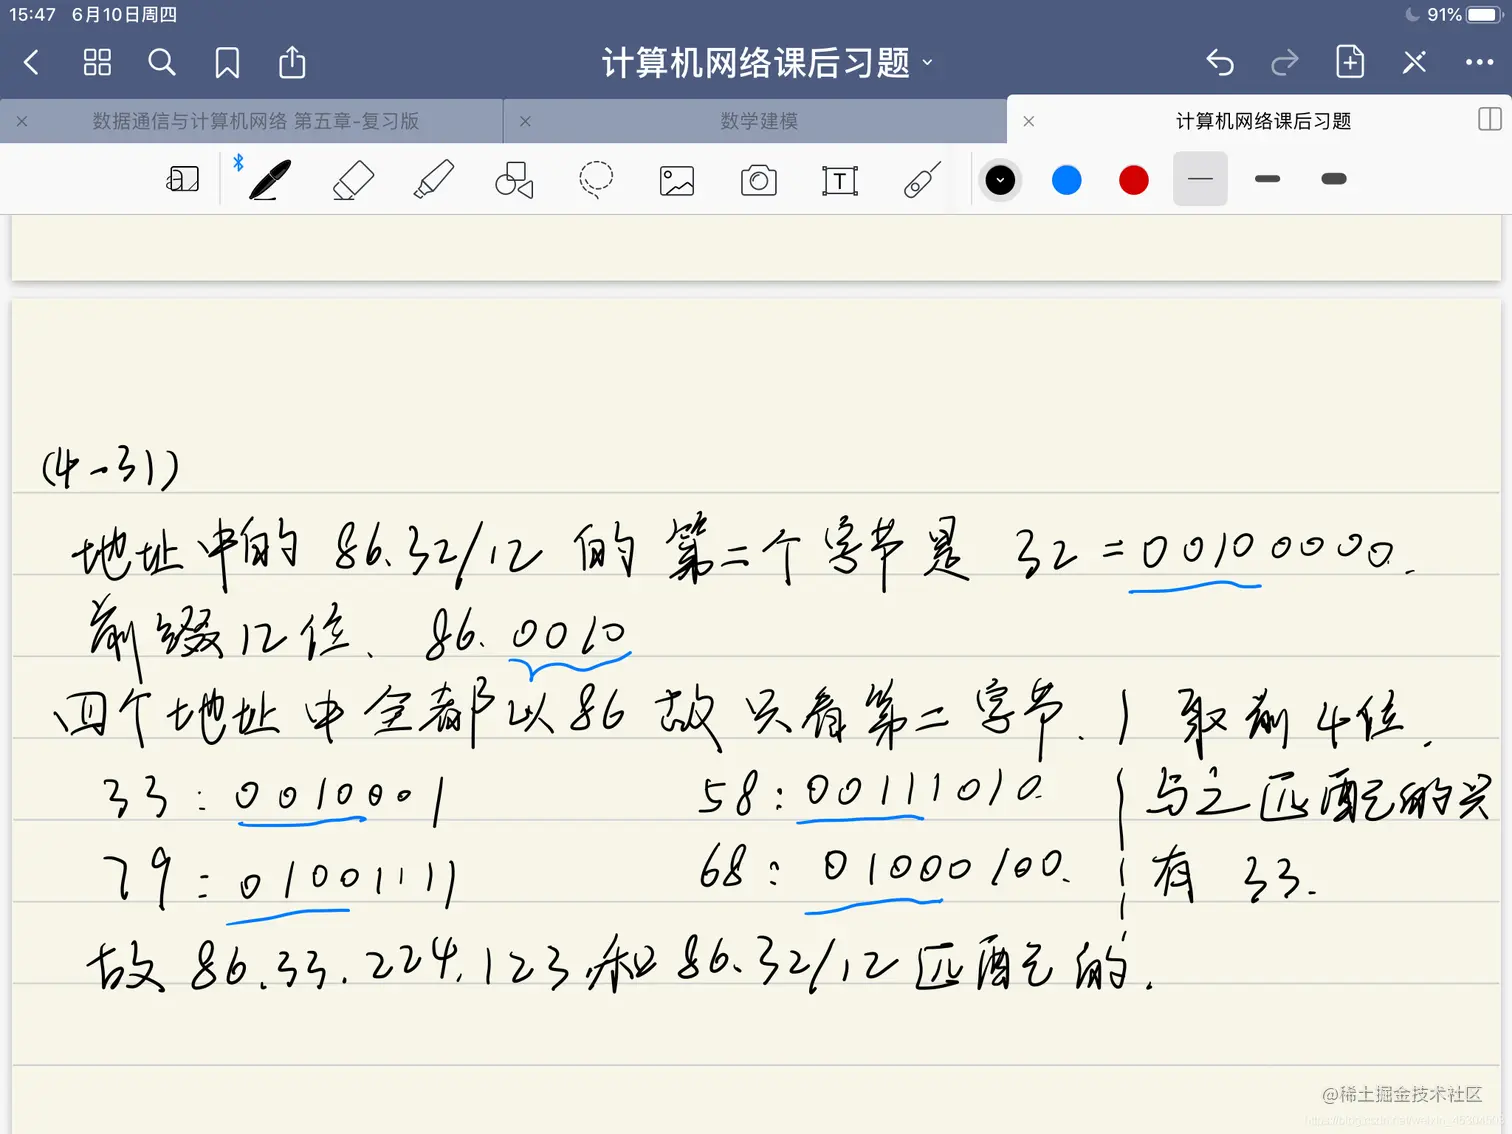 15:47 6月10日周四
91%
计算机网络课后习题
数据通信与计算机网络 第五章-复习版
数学建模
计算机网络课后习题
(4-31)
地址中的 86.32/12 的第二个字节是 32=00100000.
前缀12位、86.0010
四个地址中全都以86 故只看第二字节.
33:0010001
58:00111010.
79:01001111
68:01000100.
取前4位.
与之匹配的只
有 33.
故 86.33.224.123和86.32/12 匹配的.
@稀土掘金技术社区